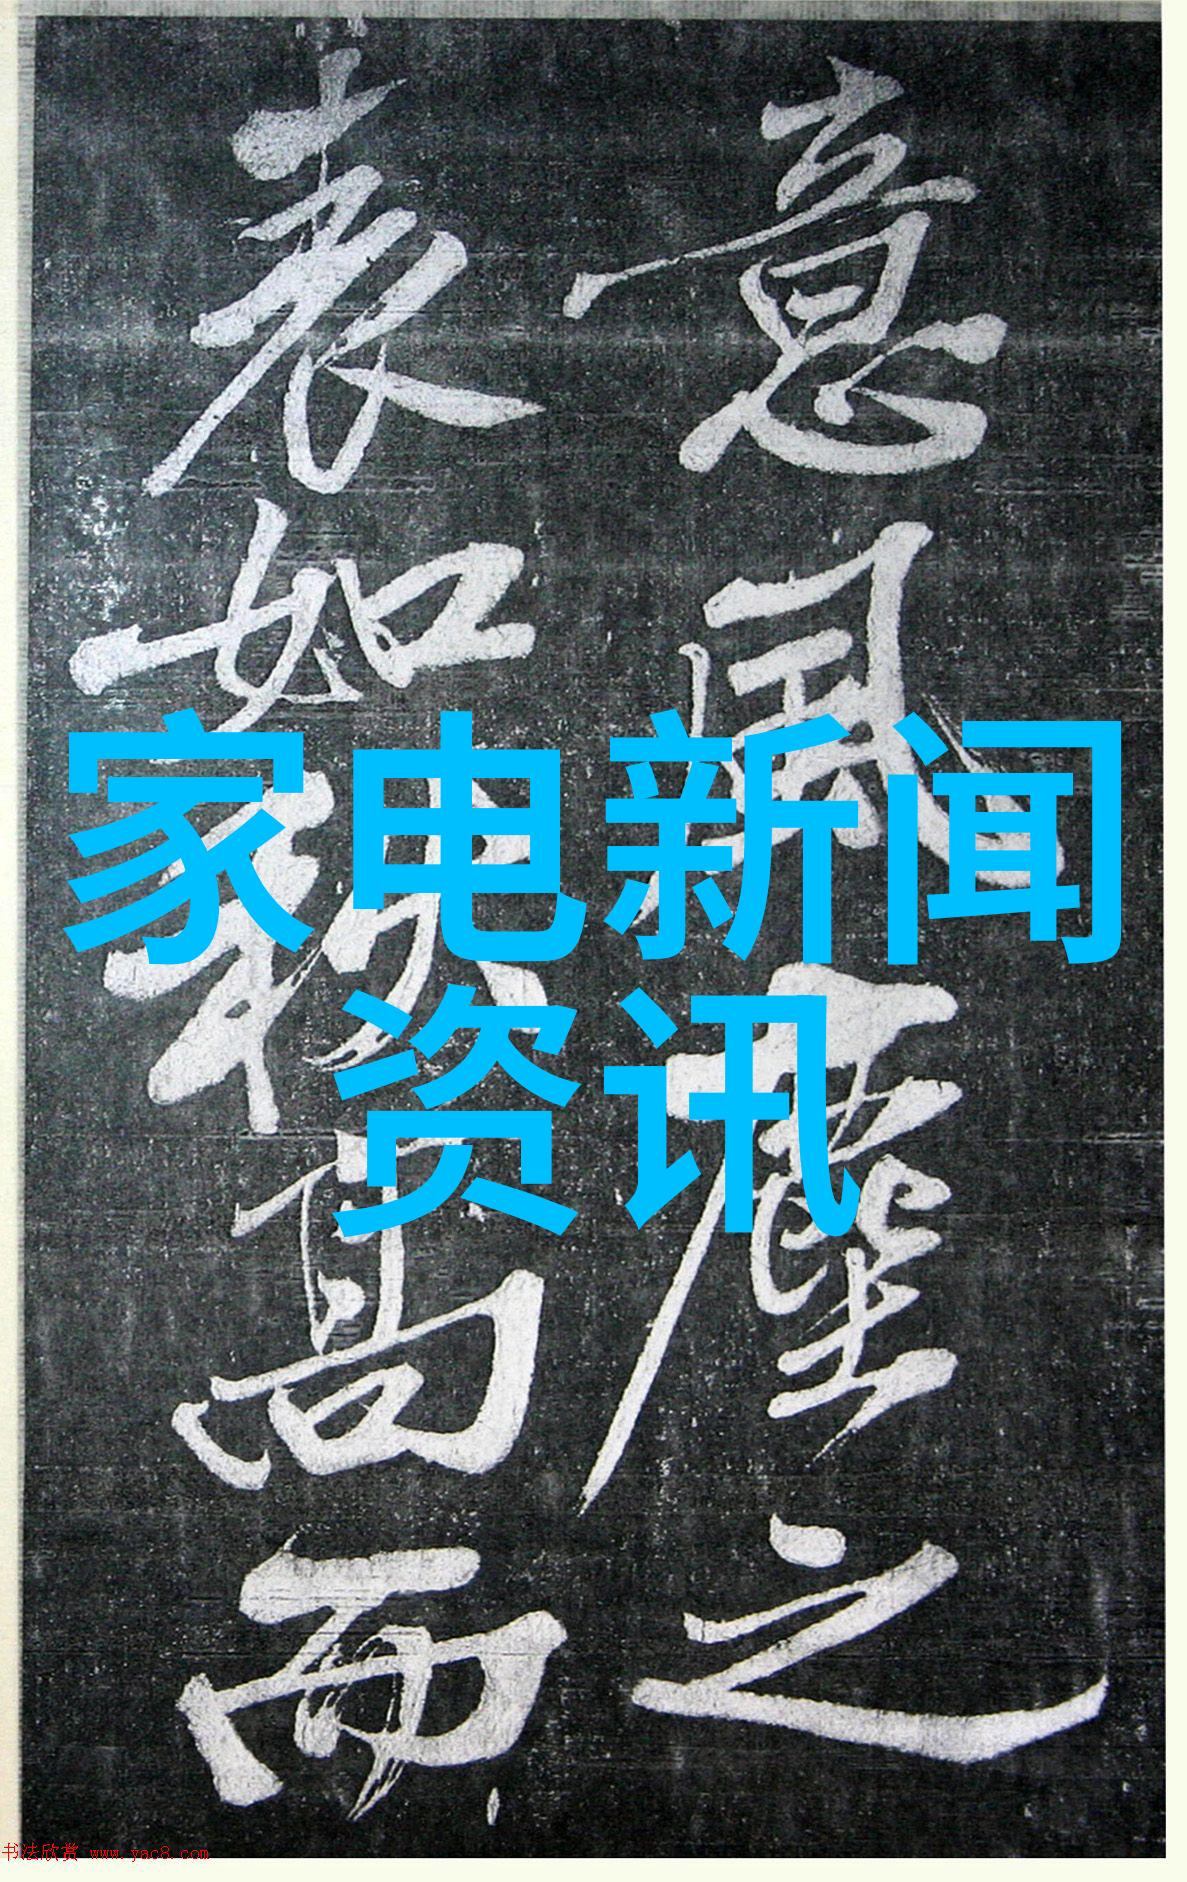 意風塵之
表如秋高而
家电新闻
资讯
书法欣赏 www.yac8.com